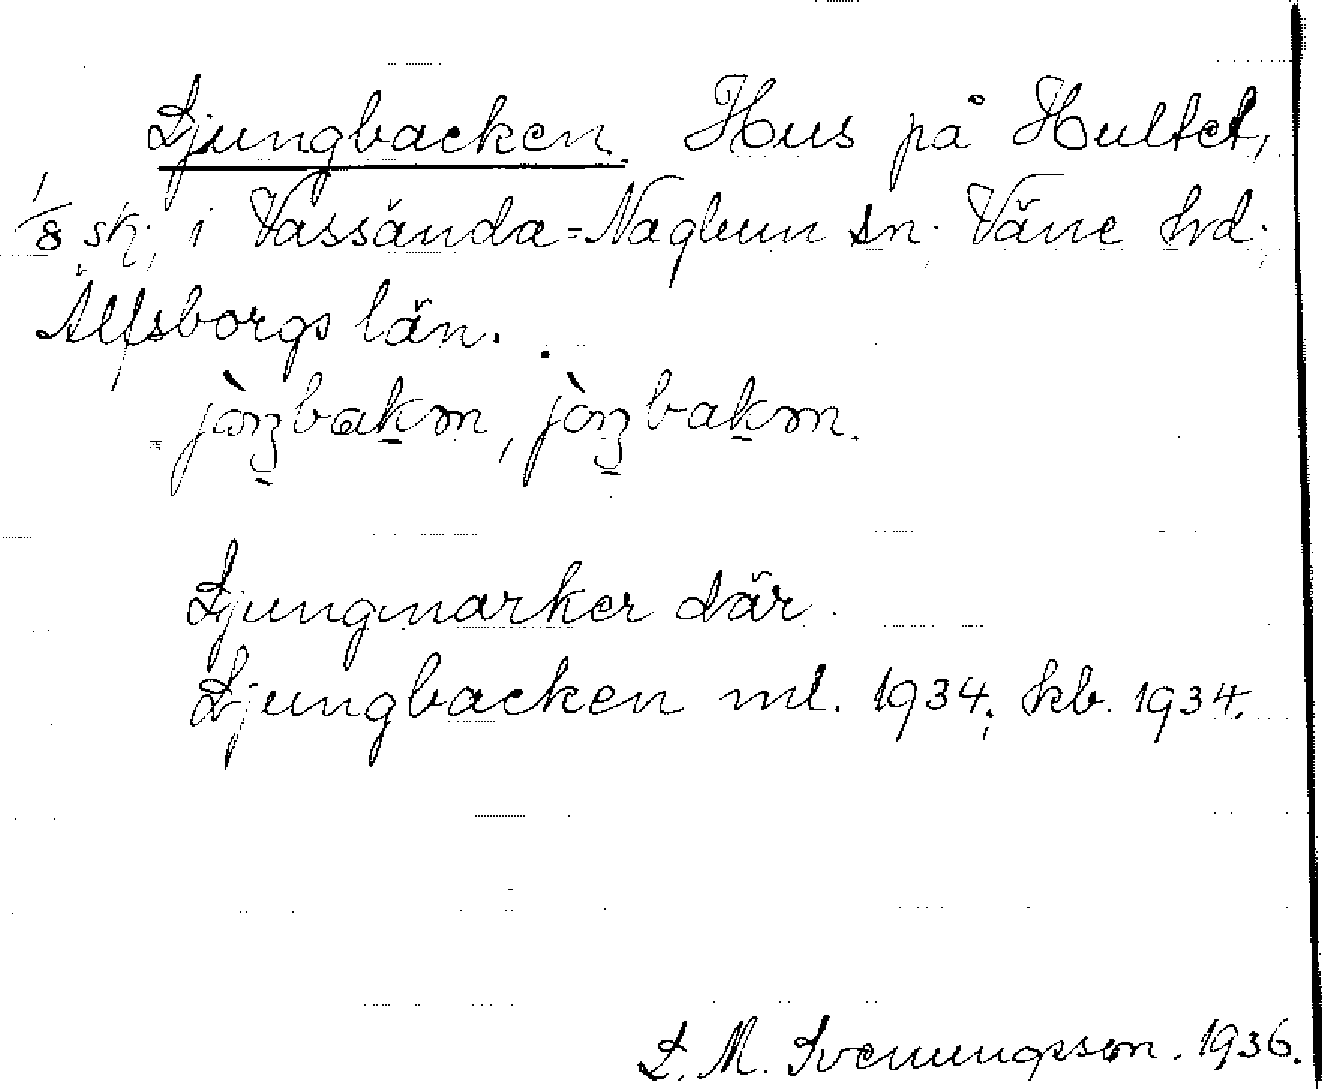 Ljungbacken. Hus på Hultet,
1/8 sk., i Vassända-Naglum sn. Väne hd.,
Älfsborgs län.
Ljungmarker där.
Ljungbacken ml. 1934; kb. 1934.
L. M. Svenungsson. 1936.